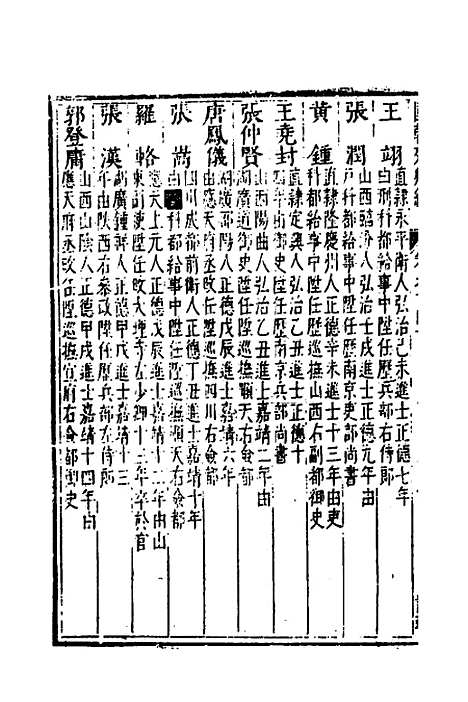 王翊直隸永平衛人弘治己未進士正德七年
由刑科都給事中陞任歷兵部右侍郎
張潤山西臨汾人弘治壬戌進士正德元年由
戶科都給事中陞任歷南京吏部尚書
黃鍾直隸隆慶州人正德辛未進士十三年由吏
科都給事中陞任歷巡撫山西右副都御史
王堯封直隸定興人弘治乙丑進士正德十
年由御史陞任歷南京兵部尚書
張仲賢山西陽曲人弘治乙丑進士嘉靖二年由
湖廣道御史陞任歷巡撫順天右僉都
唐鳳儀湖廣邵陽人正德戊辰進士嘉靖六年
由應天府丞改任陞巡撫四川右僉都
張嵩四川成都前衛人正德丁丑進士嘉靖十年
由科都給事中陞任陞巡撫順天右僉都
羅輅應天上元人正德戊辰進士嘉靖十二年由山
東副使陞任改大理寺左少卿十三年卒於官
張漢湖廣鍾祥人正德甲戌進士嘉靖十三
年由陝西右參政陞任歷兵部左侍郎
郭登庸山西山陰人正德甲戌進士嘉靖十四年由
應天府丞改任陞巡撫宣府右僉都御史